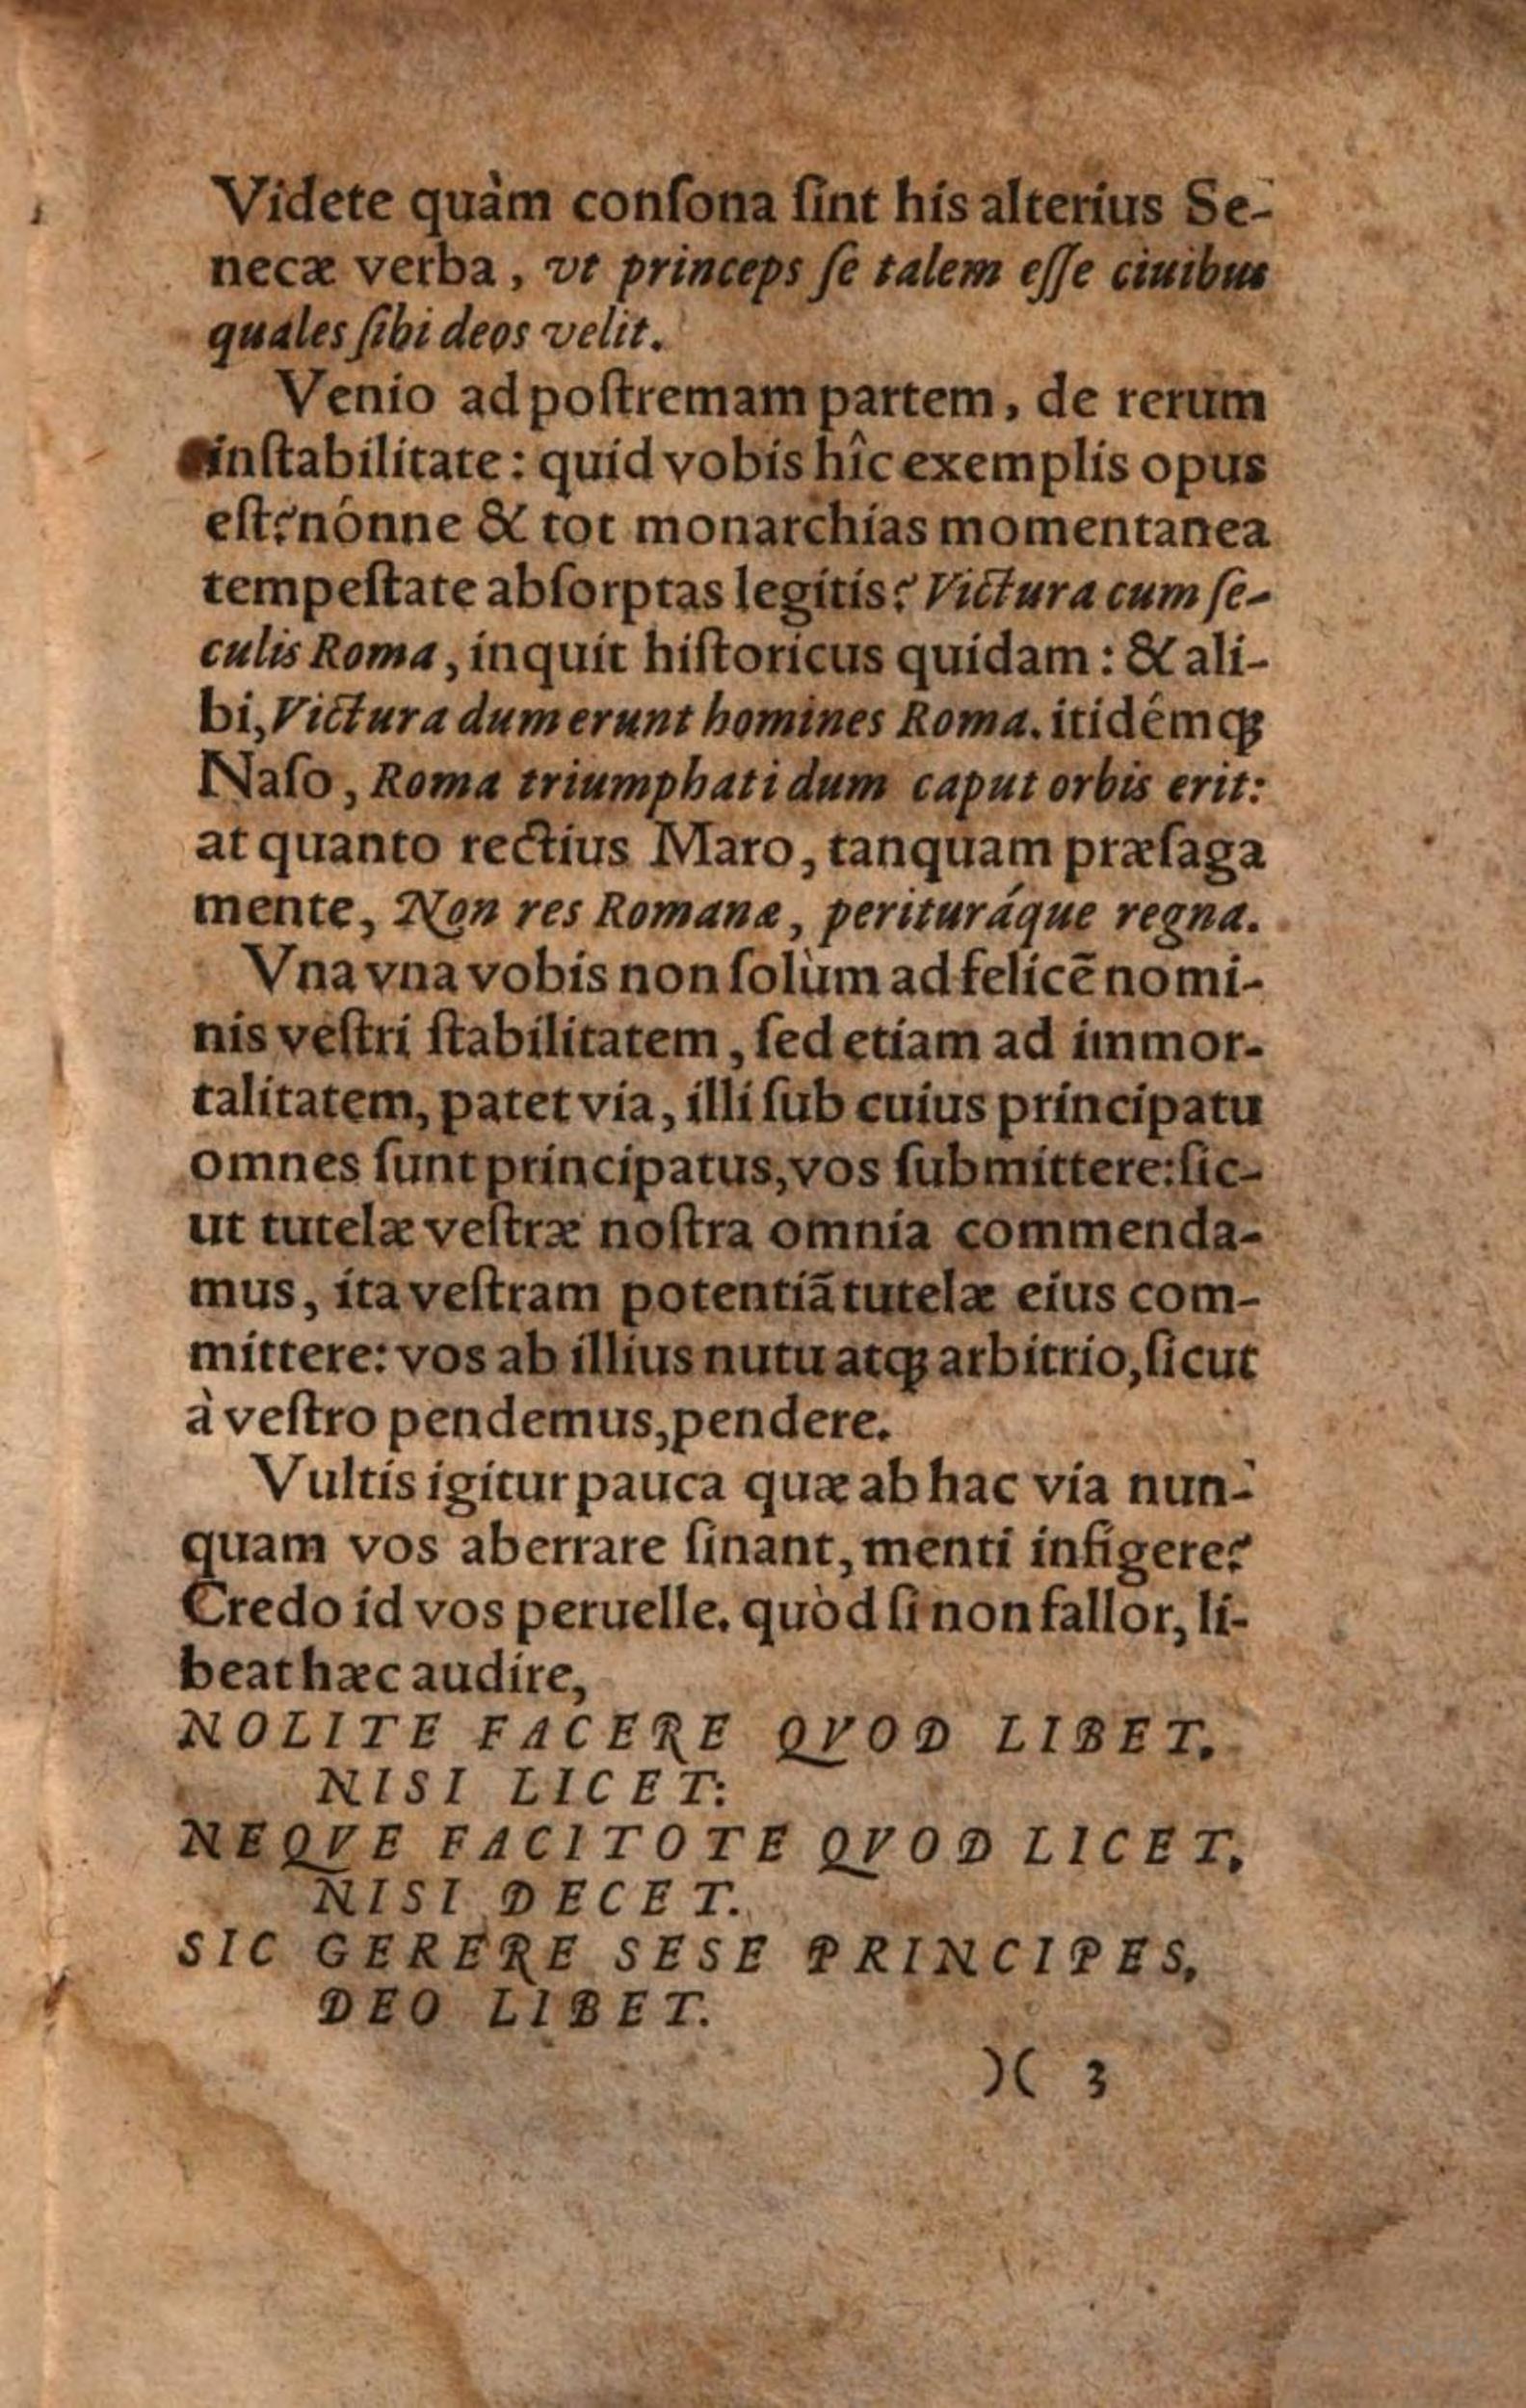 Videte quàm conſona ſint his alterius Se-
necæ verba, vt princeps ſe talem eſſe ciuibus
quales ſibi deos velit.
Venio ad poſtremam partem, de rerum
inſtabilitate: quid vobis hîc exemplis opus
eſt? nónne & tot monarchias momentanea
tempeſtate abſorptas legitis? Victura cum ſe-
culis Roma, inquit hiſtoricus quidam: & ali-
bi, Victura dum erunt homines Roma. itidémq;
Naſo, Roma triumphati dum caput orbis erit:
at quanto rectius Maro, tanquam præſaga
mente, Non res Romanæ, perituráque regna.
Vna vna vobis non ſolùm ad felicē nomi-
nis veſtri ſtabilitatem, ſed etiam ad immor-
talitatem, patet via, illi ſub cuius principatu
omnes ſunt principatus, vos ſubmittere: ſic-
ut tutelæ veſtræ noſtra omnia commenda-
mus, ita veſtram potentiā tutelæ eius com-
mittere: vos ab illius nutu atq; arbitrio, ſicut
à veſtro pendemus, pendere.
Vultis igitur pauca quæ ab hac via nun-
quam vos aberrare ſinant, menti infigere?
Credo id vos peruelle. quòd ſi non fallor, li-
beat hæc audire,
NOLITE FACERE QVOD LIBET,
NISI LICET:
NEQVE FACITOTE QVOD LICET,
NISI DECET.
SIC GERERE SESE PRINCIPES,
DEO LIBET.
)( 3